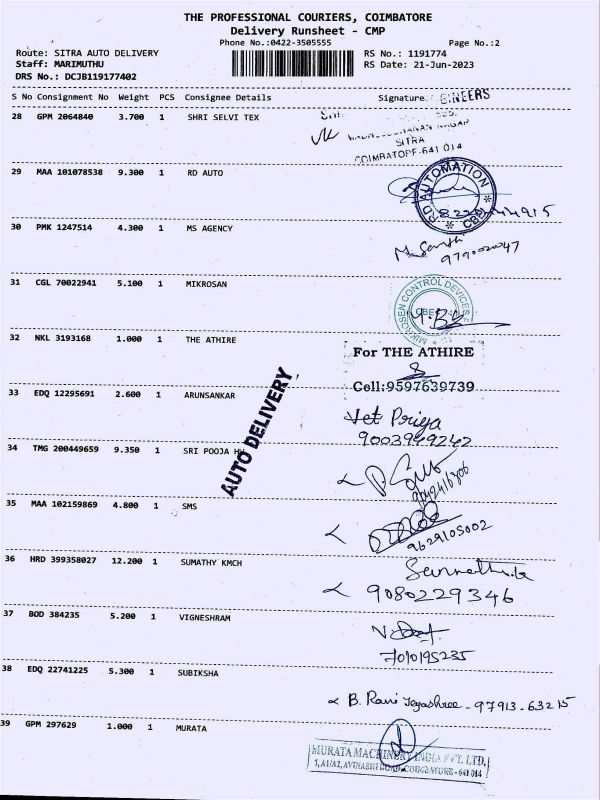 THE PROFESSIONAL COURIERS, COIMBATORE
Delivery Runsheet - CMP
Phone No.:0422-3505555
Page No.:2
Route: SITRA AUTO DELIVERY
RS No.: 1191774
Staff: MARIMUTHU
RS Date: 21-Jun-2023
DRS No.: DCJB119177402
S No Consignment No Weight PCS Consignee Details Signature
28 GPM 2064840 3.700 1 SHRI SELVI TEX
NAGAR
SITRA
COIMBATORE-641 014
29 MAA 101078538 9.300 1 RD AUTO
RD AUTOMATION
CBE
30 PMK 1247514 4.300 1 MS AGENCY
31 CGL 70022941 5.100 1 MIKROSAN
MIKROSEN CONTROL DEVICES
32 NKL 3193168 1.000 1 THE ATHIRE
For THE ATHIRE
Cell:9597639739
33 EDQ 12295691 2.600 1 ARUNSANKAR
Vet Priya
9003949242
34 TMG 200449659 9.350 1 SRI POOJA
AUTO DELIVERY
35 MAA 102159869 4.800 1 SMS
9629105002
36 HRD 399358027 12.200 1 SUMATHY KMCH
9080229346
37 BOD 384235 5.200 1 VIGNESHRAM
7010195235
38 EDQ 22741225 5.300 1 SUBIKSHA
B. Rani Jeyashree - 97913-63215
39 GPM 297629 1.000 1 MURATA
MURATA MACHINERY INDIA PVT. LTD.
AVINASHI ROAD, COIMBATORE - 641 014